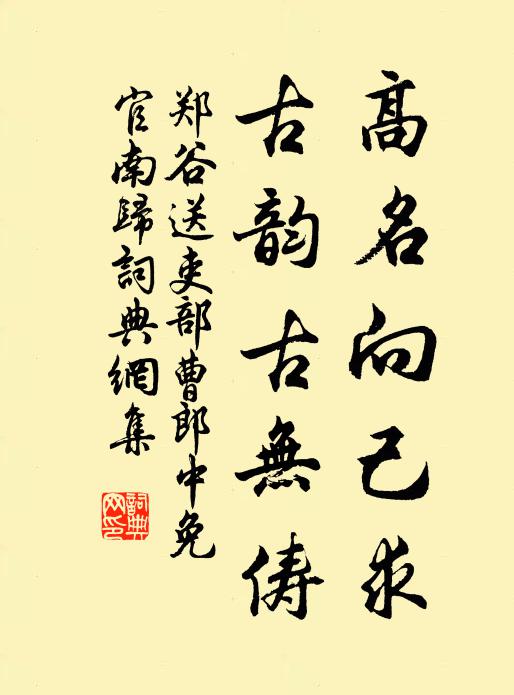 高名向己求
古韵古無儔
郑谷送吏部曹郎中免
官南歸詞典網集
詞典网印